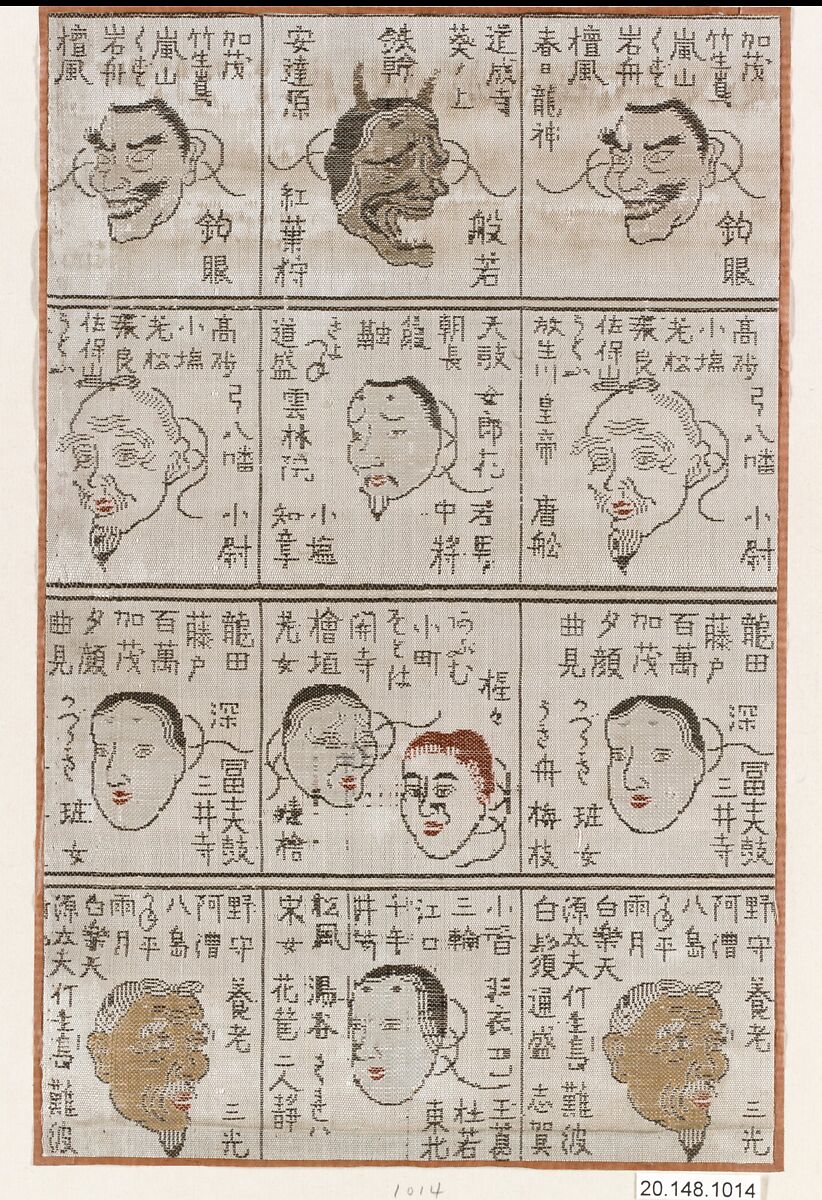 加茂
竹生嶌
嵐山
くも
岩舟
檀風
春日龍神
釣眼
道成寺
葵ノ上
鉄幹
安達源
紅葉狩
般若
加茂
竹生嶌
嵐山
くも
岩舟
檀風
釣眼
高砂
小塩
老松
佐保山
放生川
皇帝
唐舩
弓八幡
小尉
天鼓
朝長
融
道盛
雲林院
女郎花
知章
小塩
中将
若男
高砂
小塩
老松
佐保山
弓八幡
小尉
龍田
藤戸
百萬
加茂
夕顔
曲見
深
冨士太鼓
三井寺
班女
うき舟
梅枝
小町
そとは
関寺
檜垣
老女
猩々
龍田
藤戸
百萬
加茂
夕顔
曲見
深
冨士太鼓
三井寺
班女
野守
阿漕
八島
雨月
白楽天
源太夫
白髭
通盛
志賀
竹生島
難波
養老
三光
三輪
江口
千手
井筒
松風
采女
花筐
湯谷
二人静
玉葛
杜若
東北
野守
阿漕
八島
雨月
白楽天
源太夫
竹生島
難波
養老
三光
1014
20.148.1014